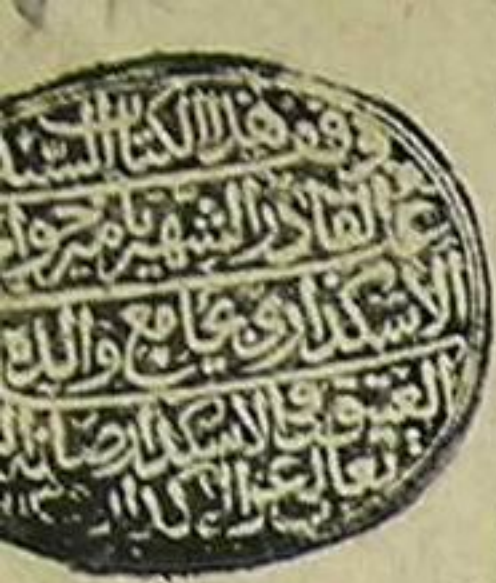 وقف هذا الكتاب السيد
عبد القادر الشهير بامير خوا
الاسكداري بجامع والده
العتيق في الاسكدار صانه ال
تعالى عن الاكدار